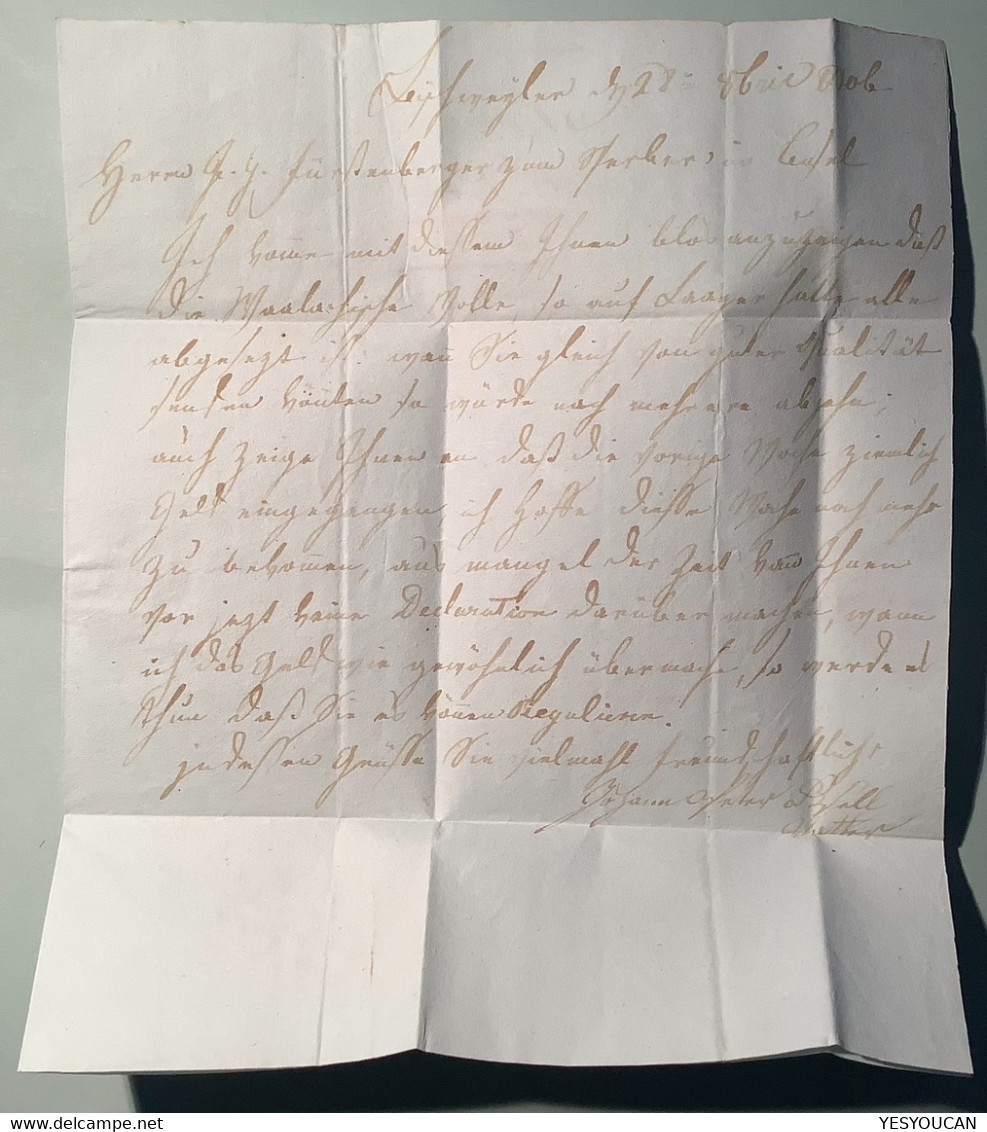 Bischweyler d 28 8bre 806
Herrn J. J. Fürstenberger zum Sperber in Basel
Ich komme mit diessem Ihnen blos anzuzeigen daß
die Waalachische Wolle, so auf Laager hatte alle
abgesezt ist. wan Sie gleich von guter Qualität
senden könten so würde noch mehrere absezen,
auch Zeige Ihnen an daß die vorige Woche ziemlich
Geld eingegangen, ich Hoffe diesse Woche noch mehr
zu bekommen, aus mangel der Zeit kan Ihnen
vor jezt keine Declaration darüber machen, wann
ich das Geld wie gewöhnlich übermache, so werde es
thun daß Sie es können Reguliren.
jndessen Grüsse Sie vielmahl freundschaftlichst
Johann Peter
YESYOUCAN